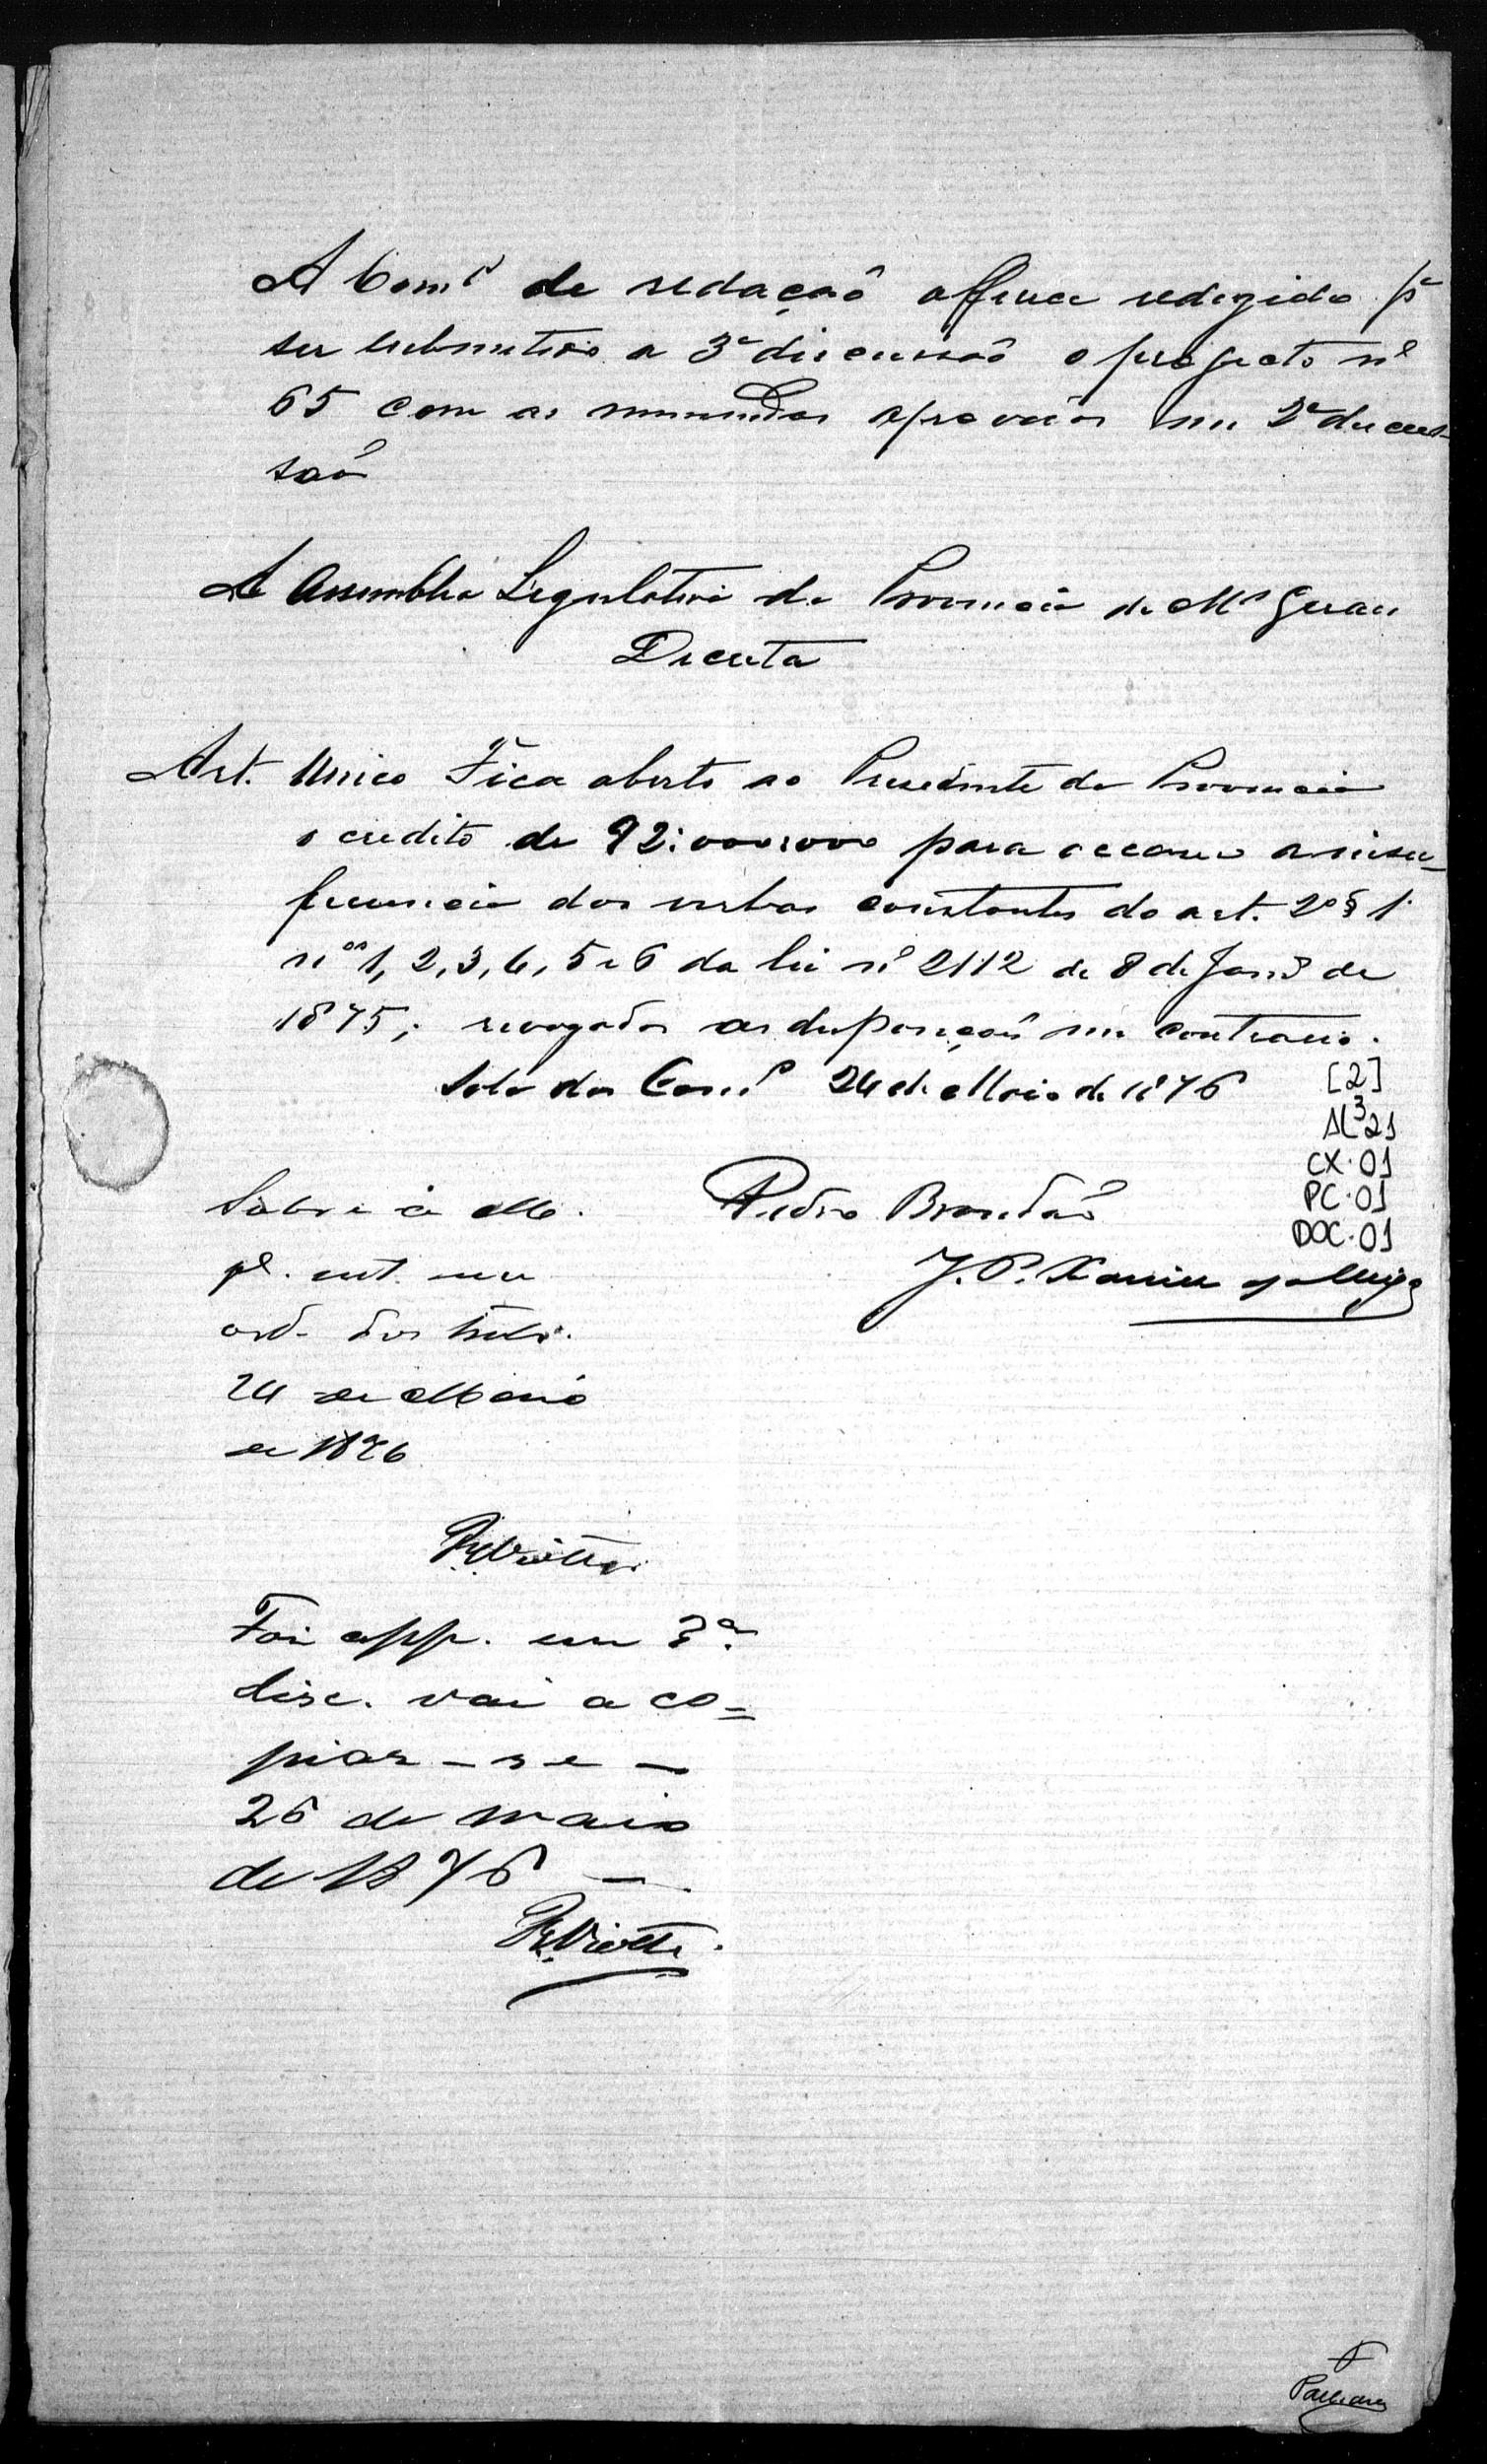 A Comᵐ de redacçaõ offerece redegido pᵃ
ser submetido a 3ª discussaõ o projecto nº
65 com as emmendas aprovadas em 2ª discus-
saõ
A Assemblea Legislativa da Provincia de Mˢ Geraes
Decreta
Art. Unico Fica aberto ao Presidente da Provincia
o credito de 92:000$000 para occorrer a insu-
ficiencia das verbas constantes do art. 2º § 1º
nᵒˢ 1, 2, 3, 4, 5 e 6 da lei nº 2112 de 8 de Janrº de
1875; revogadas as disposiçoẽs em contrario.
Sala das Comᵐ 24 de Maio de 1876
[2]
AL³21
CX.01
PC.01
DOC.01
Pedro Brandaõ
J. P. Xavier da Veiga
Sobre a M.
pª. ent. na
ord. dos trab.
24 de Maio
de 1876
Foi app. em 3ª
disc. vai a co-
piar-se-
26 de maio
de 1876 -